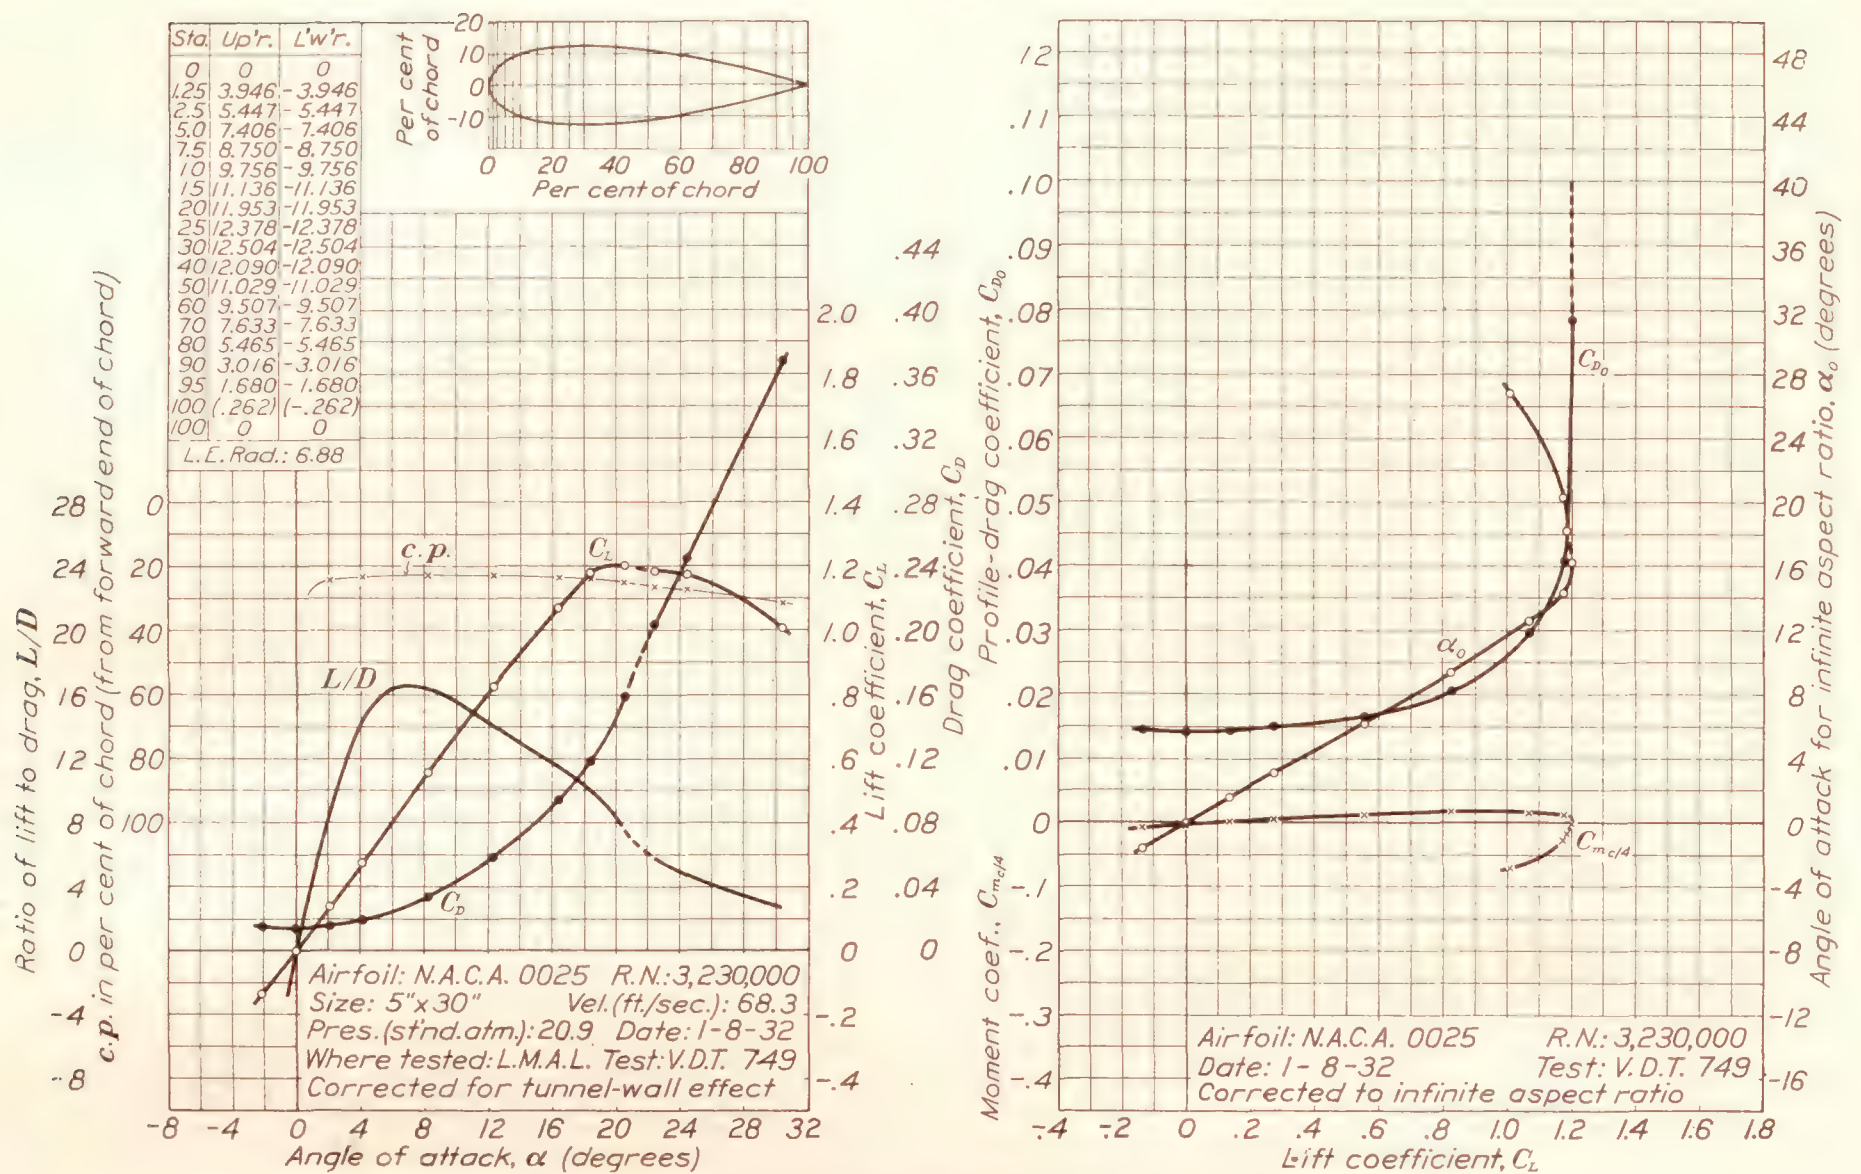 Sta. Up'r. L'w'r.
0 0 0
1.25 3.946 -3.946
2.5 5.447 -5.447
5.0 7.406 -7.406
7.5 8.750 -8.750
10 9.756 -9.756
15 11.136 -11.136
20 11.953 -11.953
25 12.378 -12.378
30 12.504 -12.504
40 12.090 -12.090
50 11.029 -11.029
60 9.507 -9.507
70 7.633 -7.633
80 5.465 -5.465
90 3.016 -3.016
95 1.680 -1.680
100 (.262) (-.262)
100 0 0
L.E. Rad.: 6.88
Per cent of chord
20
10
0
-10
0 20 40 60 80 100
Per cent of chord
Ratio of lift to drag, L/D
28
24
20
16
12
8
4
0
-4
-8
c.p. in per cent of chord (from forward end of chord)
0
20
40
60
80
100
c.p.
C_L
L/D
C_D
2.0
1.8
1.6
1.4
1.2
1.0
.8
.6
.4
.2
0
-.2
-.4
Lift coefficient, C_L
.44
.40
.36
.32
.28
.24
.20
.16
.12
.08
.04
0
Drag coefficient, C_D
Airfoil: N.A.C.A. 0025 R.N.: 3,230,000
Size: 5"x30" Vel. (ft./sec.): 68.3
Pres. (st'nd. atm.): 20.9 Date: 1-8-32
Where tested: L.M.A.L. Test: V.D.T. 749
Corrected for tunnel-wall effect
-8 -4 0 4 8 12 16 20 24 28 32
Angle of attack, α (degrees)
Profile-drag coefficient, C_D₀
.12
.11
.10
.09
.08
.07
.06
.05
.04
.03
.02
.01
0
Moment coef., C_mc/4
-.1
-.2
-.3
-.4
C_D₀
α₀
C_mc/4
48
44
40
36
32
28
24
20
16
12
8
4
0
-4
-8
-12
-16
Angle of attack for infinite aspect ratio, α₀ (degrees)
Airfoil: N.A.C.A. 0025 R.N.: 3,230,000
Date: 1-8-32 Test: V.D.T. 749
Corrected to infinite aspect ratio
-.4 -.2 0 .2 .4 .6 .8 1.0 1.2 1.4 1.6 1.8
Lift coefficient, C_L